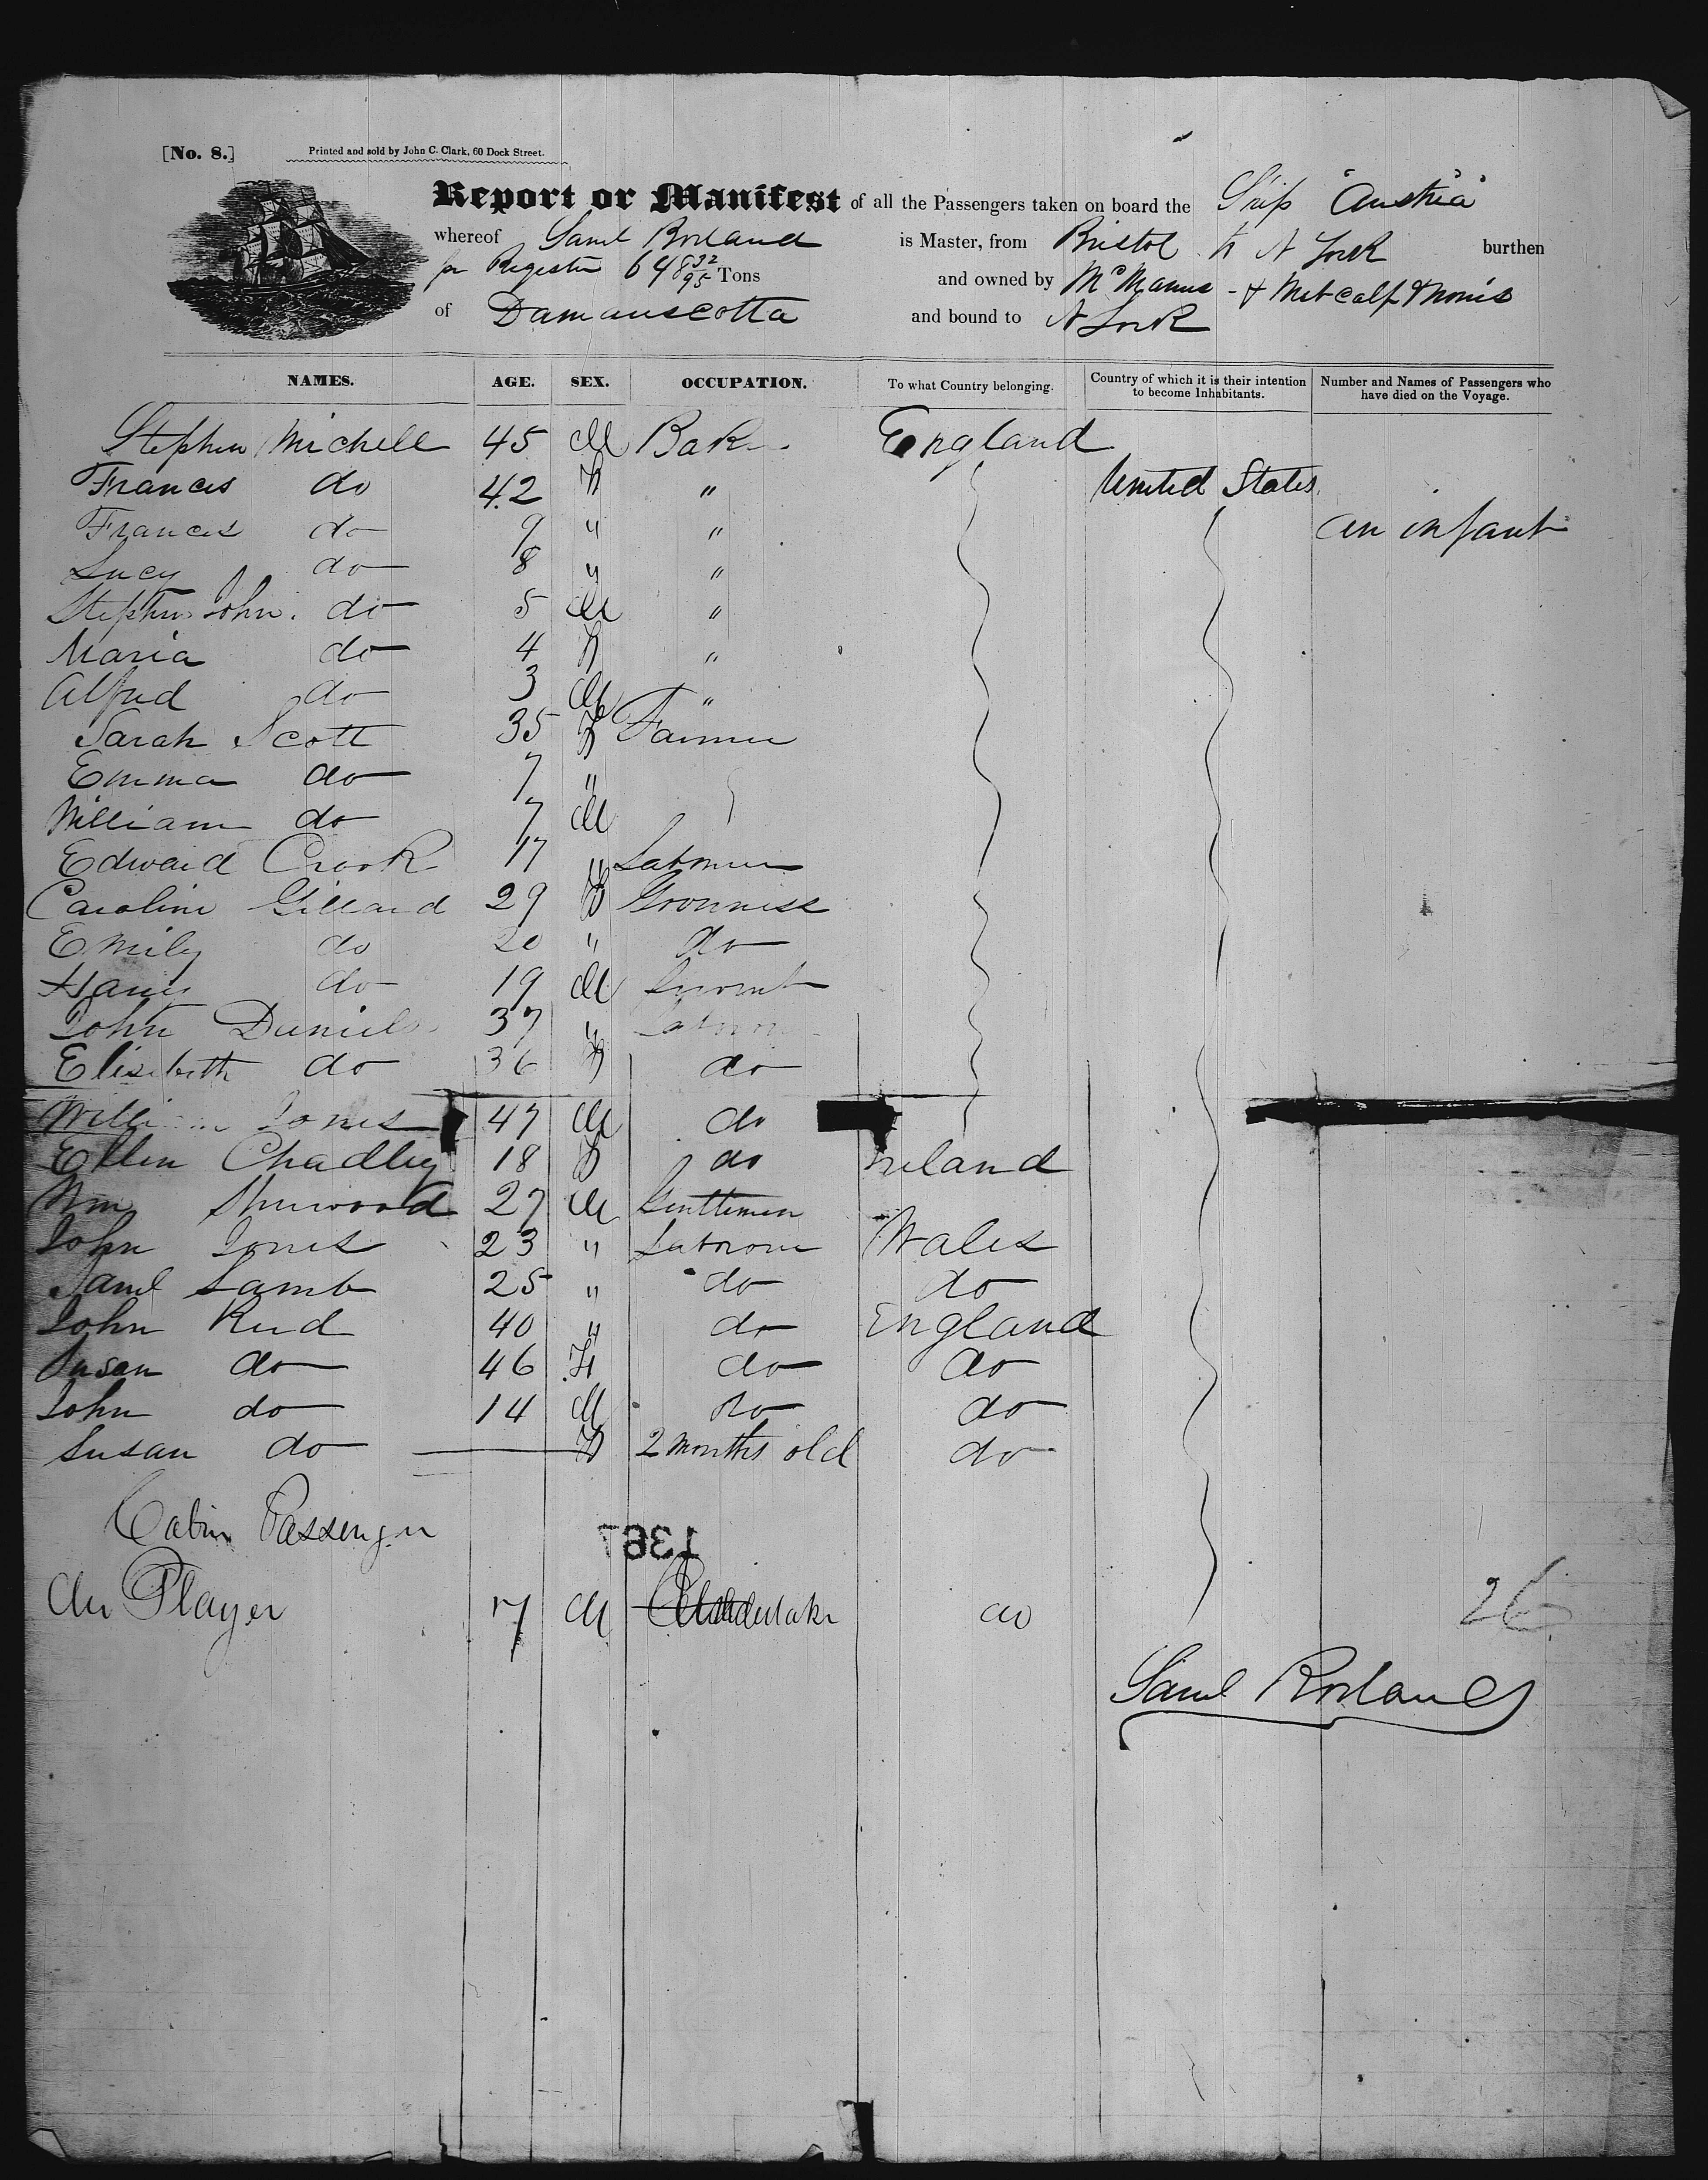 [No. 8.] Printed and sold by John C. Clark, 60 Dock Street.
Report or Manifest of all the Passengers taken on board the Ship "Austria"
whereof Saml Borland is Master, from Bristol to N York burthen
per Register 648 32/95 Tons and owned by McManus & Metcalf & Norris
of Damariscotta and bound to N York
NAMES. AGE. SEX. OCCUPATION. To what Country belonging. Country of which it is their intention to become Inhabitants. Number and Names of Passengers who have died on the Voyage.
Stephen Michell 45 M Baker England
Frances do 42 F " United States
Frances do 9 " " an infant
Lucy do 8 " "
Stephen John do 5 M "
Maria do 4 F "
Alfred do 3 M "
Sarah Scott 35 F Farmer
Emma do 7 "
William do 7 M
Edward Crook 17 " Labourer
Caroline Gillard 29 F
Emily do 20 " do
do 19 M
John Daniels 37 " Labourer
Elisabeth do 36 F do
William Jones 47 M do
Ellen Chadley 18 F do Ireland
Wm Sherwood 27 M Gentleman
John Jones 23 " Labourer Wales
Saml Lamb 25 " do do
John Reed 40 " do England
Susan do 46 F do do
John do 14 M do do
Susan do F 2 months old do
Cabin Passenger
1367
Mr Player 17 M do
26
Saml Borland